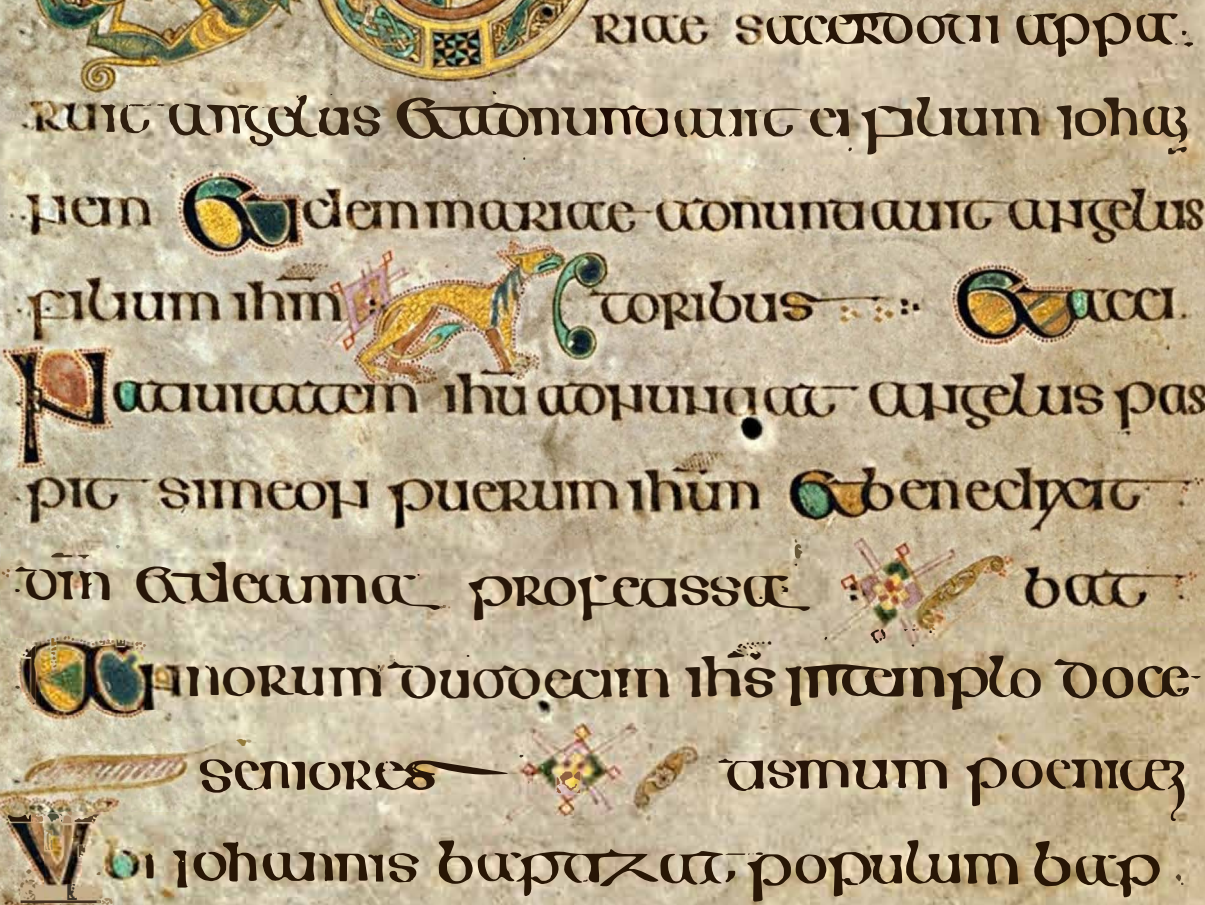 riae sacerdoti appa
ruit angelus Et adnuntiauit ei filium ioha
nem Et eidem mariae adnuntiauit angelus
filium ihm toribus Et acci
Natiuitatem ihu adnuntiat angelus pas
pit simeon puerum ihm Et benedixit
dm Et de anna profetissa bat
Annorum duodecim ihs in templo doce
seniores tismum poenitę
Ubi iohannis baptizat populum bap